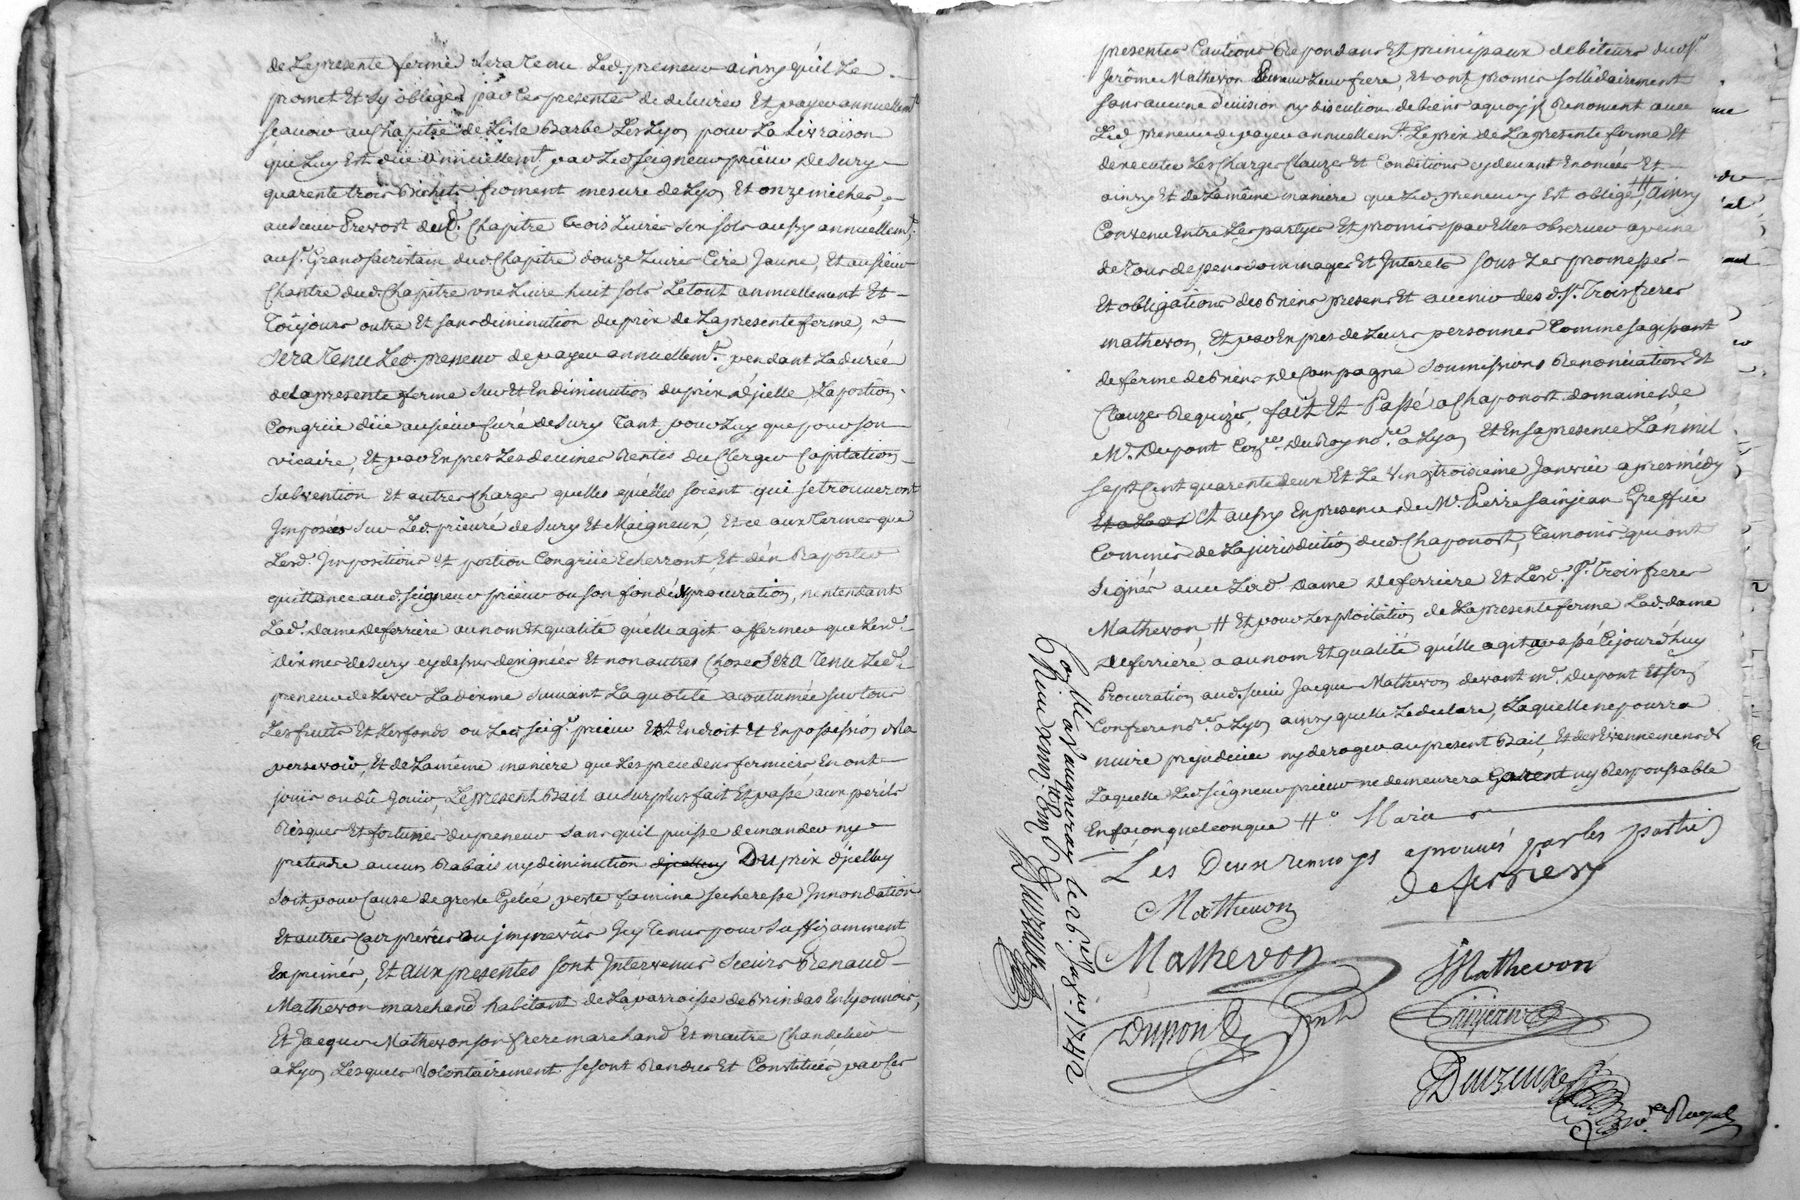 de La presente ferme sera Tenu Led. preneur ainsy qu'il Le
promet Et sy oblige par Ces presentes de delivrer Et payer annuellemt.
scavoir au Chapitre de L'isle Barbe Les Lyon pour La Livraison
que Luy Est düe annüellemt. par Led. seigneur prieur de Sury
quarente trois Bichets froment mesure de Lyon Et onze miches,
au sieur Prevost dud. Chapitre trois Livres six sols aussy annuellemt.
au sr. Grand sacristain dud. Chapitre douze Livres Cire Jaune, Et au sieur
Chantre dud. Chapitre une Livre huit sols Le tout annuellement Et
Toujours outre Et sans diminution du prix de La presente ferme,
sera Tenu Led. preneur de payer annuellemt. pendant La durée
de La presente ferme sur Et En diminution du prix d'jcelle La portion
Congrüe düe au sieur Curé de Sury Tant pour Luy que pour son
vicaire, Et par Expres Les decimes Rentes du Clergé Capitation
Subvention et autres Charges quelles quelles soient qui se trouveront
Imposées sur Led. prieuré de Sury Et Maigneux, Et ce aux Termes que
Lesd. Impositions et portion Congrüe Echerront Et d'en Raporter
quittance aud. seigneur prieur ou son fondé de procuration, n'entendant
Lad. Dame Deferriere au nom Et qualité quelle agit affermer que Lesd.
Dixmes de Sury cy dessus designées Et non autres Choses sera Tenu Led.
preneur de Lever La dixme suivant La quotité acoutumée sur tous
Les fruits Et Les fonds ou Led. seigr. prieur Est En droit Et En possession de La
persevoir, Et de La même maniere que Les precedens fermiers En ont
jouis ou dû Jouir, Le present Bail au surplus fait Et passé aux périls
Risques Et fortunes du preneur sans quil puisse demander ny
pretendre aucun Rabais ny diminution d'jcelluy Du prix d'jcelluy
soit pour Cause de grele Gelée, peste famine secheresse Innondation
Et autres Cas prevus ou jmprevûs Icy Tenus pour suffisamment
Exprimés, Et aux presentes sont Intervenus sieurs Renaud
Mathevon marchand habitant de La parroisse de Brindas En Lyonnois,
Et Jacques Mathevon son frere marchand Et maitre Chandelier
a Lyon Lesquels volontairement se sont Rendus Et Constitués par Ces
presentes Cautions Repondans Et principaux debiteurs dud. sr.
Jerôme Mathevon Preneur Leur frere, Et ont promis sollidairement
sans aucune division ny discution de biens aquoy jls Renoncent avec
Led. preneur de payer annuellemt. Le prix de La presente ferme Et
d'executer Les Charges Clauzes Et Conditions cy devant Enoncées Et
ainsy Et de La même maniere que Led. preneur y Est obligé, Ainsy
Convenu Entre Les partyes Et promis par Elles observer a peine
de Tous depens dommages Et Interets sous Les promesses
Et obligations des Biens presens Et avenir des d. srs. Trois freres
mathevon, Et par Expres de Leurs personnes Comme s'agissant
de ferme de Biens de Campagne soumissions Renonciations Et
Clauzes Requizes, fait Et Passé a Chaponost domaine de
Me. Dupont Coner. du Roy nore. a Lyon Et En sa presence L'an mil
sept Cent quarente deux Et Le vingtroisieme Janvier apres midy
Et aussy En presence de Me. Pierre sainjean Greffier
Commis de La jurisdiction dud. Chaponost, Temoins qui ont
signés avec Lad. Dame Deferriere Et Lesd. srs. Trois freres
Mathevon, # Et pour L'exploitation de La presente ferme Lad. dame
Deferriere a au nom Et qualité qu'elle agit passé Cejourd'huy
Procuration aud. sieur Jacques Mathevon devant me. Dupont Et son
Confrere nore. a Lyon ainsy quelle Le declare, Laquelle ne pourra
nuire prejudicier ny deroger au present Bail Et des Evennemens de
Laquelle Led. seigneur prieur ne demeurera Garent ny Responsable
En façon quelconque #.
Les Deux renvoys aprouvés par les parties
Mathevon
deferriere
Mathevon
JMathevon
Dupont
Sainjean
Duizeux
Royal
Conllé a Vaugneray le 26e. Janvr. 1742